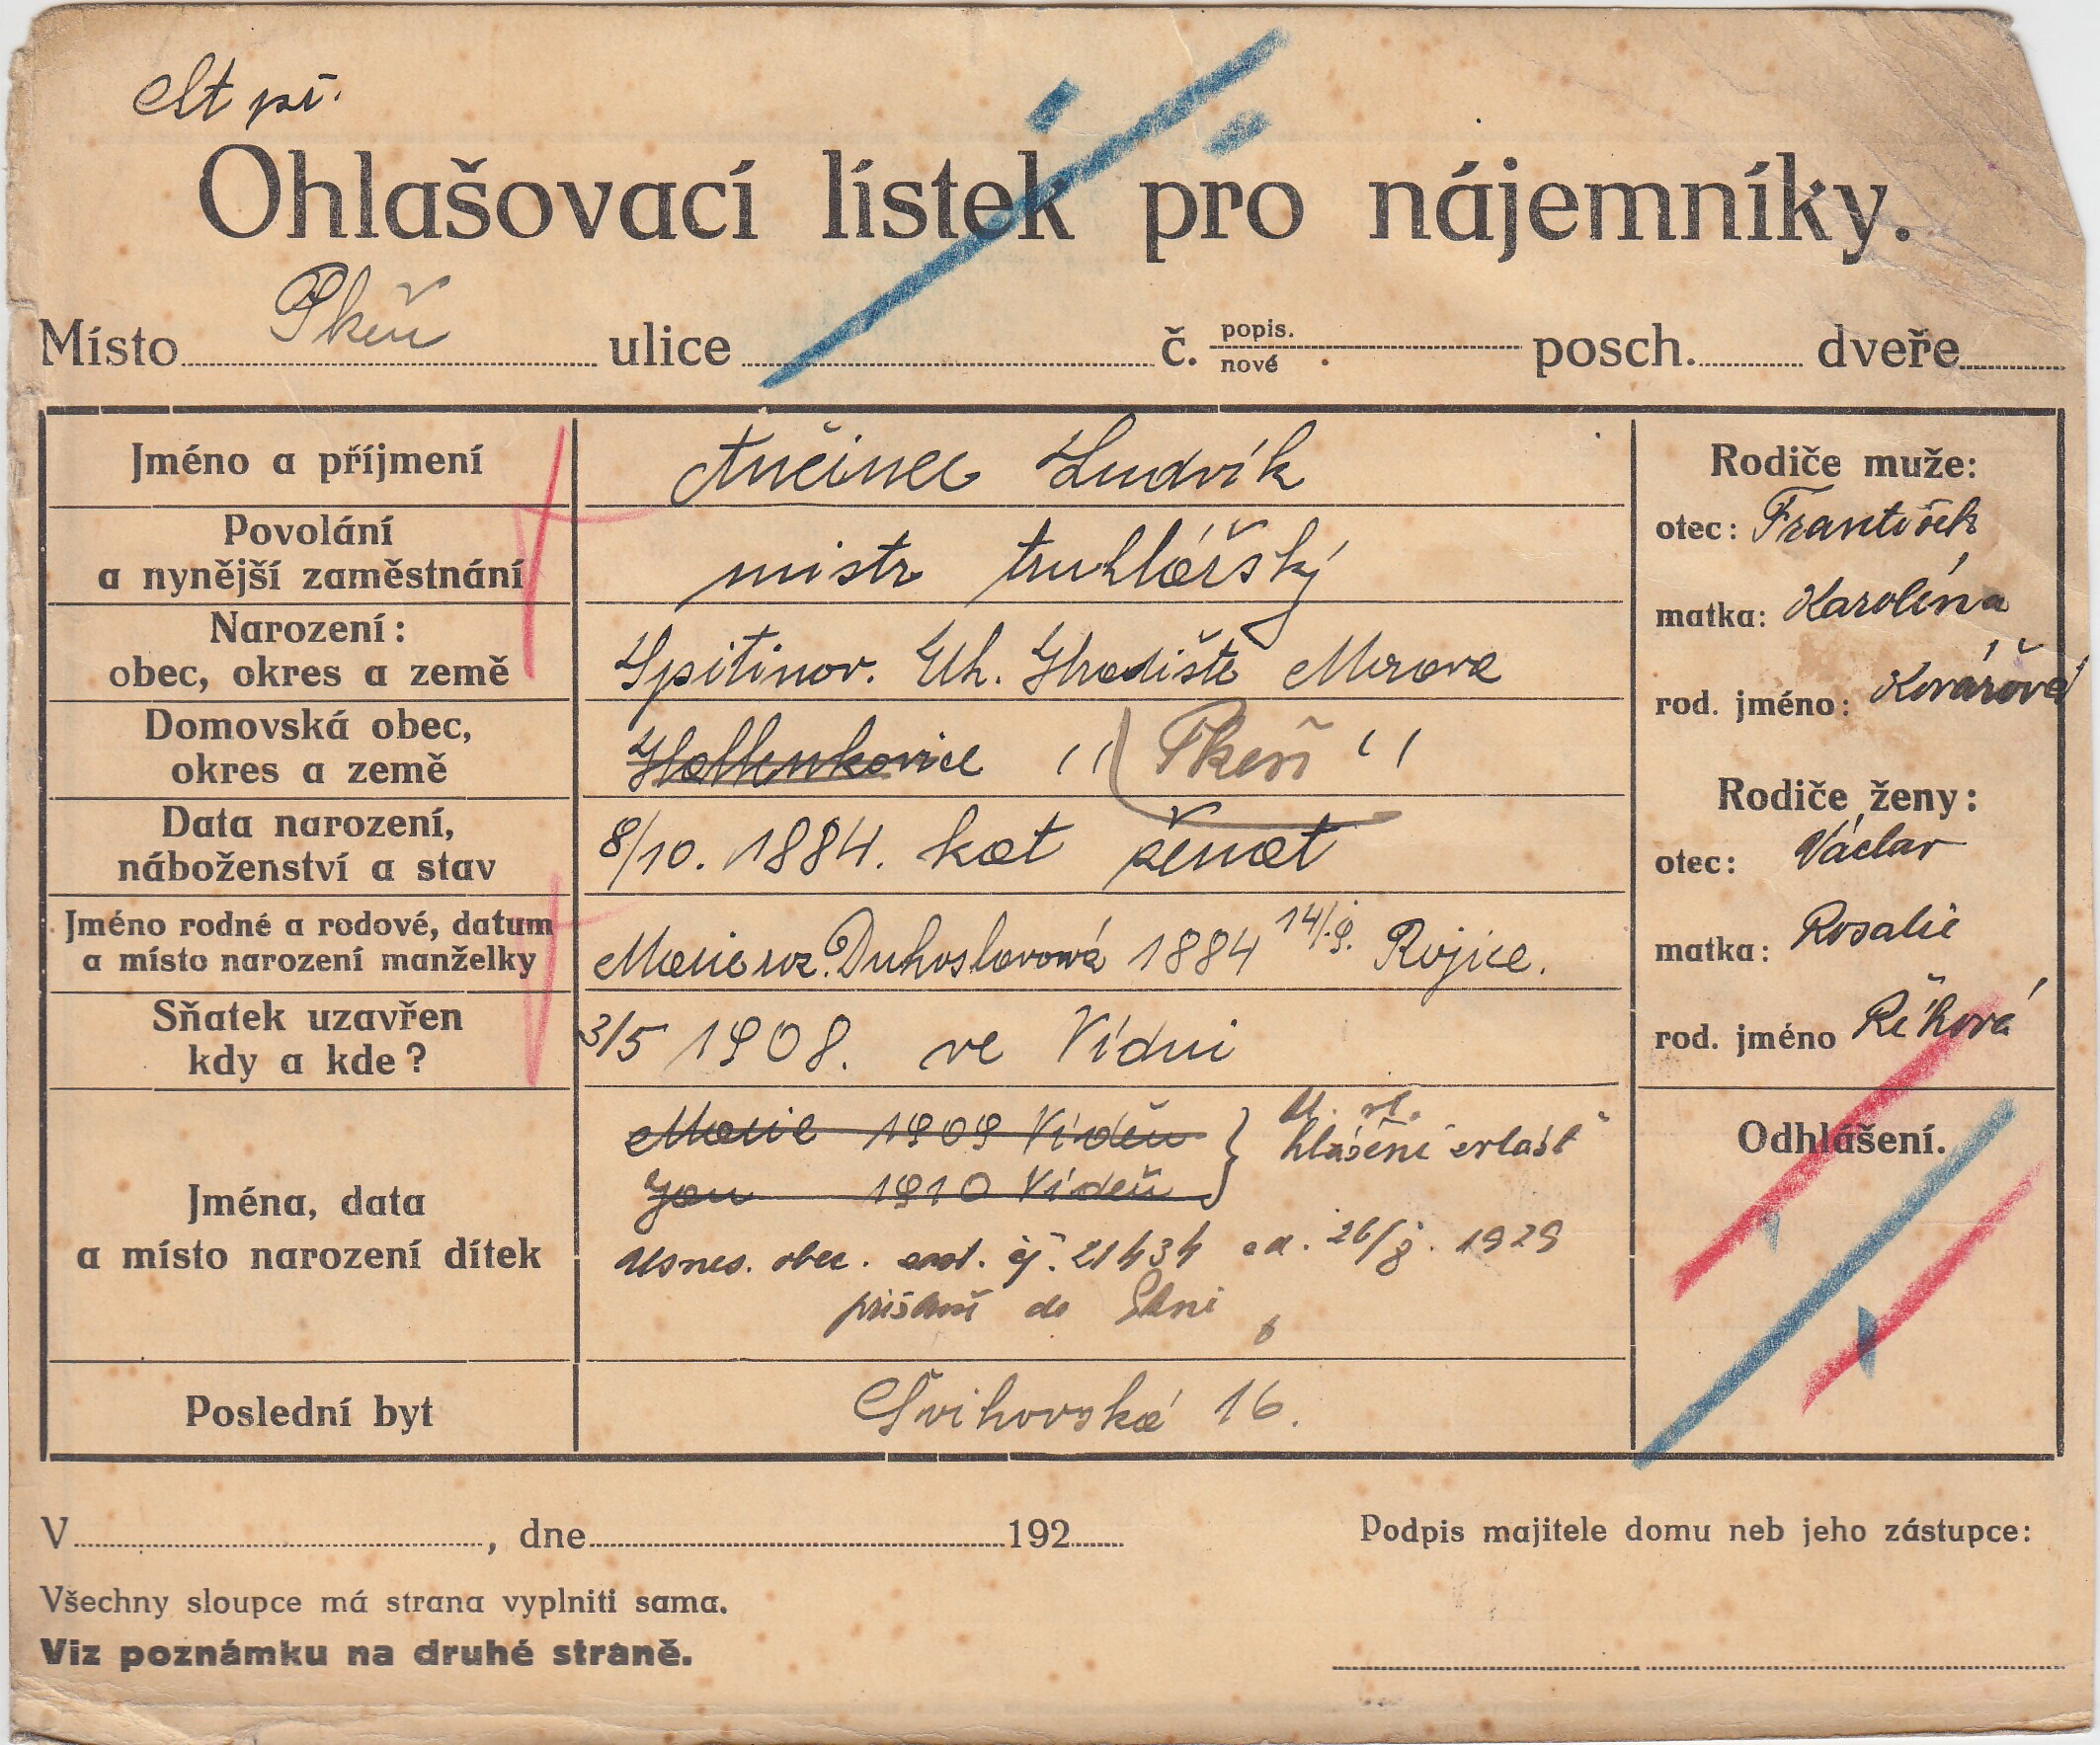 Ohlašovací lístek pro nájemníky.
Místo Plzeň ulice č. popis. nové posch. dveře
Jméno a příjmení
Ludvík
Povolání
a nynější zaměstnání
mistr truhlářský
Narození:
obec, okres a země
Spitinov. Uh. Hradiště Morava
Domovská obec,
okres a země
Plzeň
Data narození,
náboženství a stav
8/10. 1884. kat ženat
Jméno rodné a rodové, datum
a místo narození manželky
Marie roz. Duhoslavová 1884 14/9. Rojice.
Sňatek uzavřen
kdy a kde?
3/5 1908. ve Vídni
Jména, data
a místo narození dítek
Marie 1909 Vídeň
Jan 1910 Vídeň
hlášení zvlášť
Usnes. obec. zast. čj. 21434 26/8. 1929
do Plzni
Poslední byt
Švihovská 16.
Rodiče muže:
otec: František
matka: Karolína
rod. jméno: Kovářová
Rodiče ženy:
otec: Václav
matka: Rosalie
rod. jméno Říhová
Odhlášení.
V , dne 192
Podpis majitele domu neb jeho zástupce:
Všechny sloupce má strana vyplniti sama.
Viz poznámku na druhé straně.